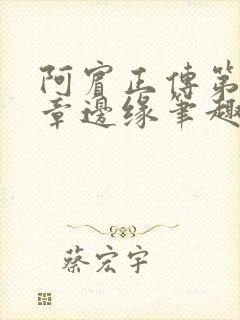 阿賓正傳第
章邊緣筆趣
蔡宏宇